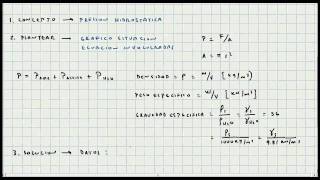 1. CONCEPTO → PRESION HIDROSTATICA
2. PLANTEAR → GRAFICO SITUACION
ECUACION INVOLUCRADAS
P = F/A
A = π r²
P = P + P + P H₂O
DENSIDAD = ρ = m/V [kg/m³]
PESO ESPECIFICO = W/V [kN/m³]
GRAVEDAD ESPECIFICA = ρs/ρH₂O = γs/γH₂O = SG
= ρs/1000 kg/m³ = γs/9.81 kN/m³
3. SOLUCION → DATOS :